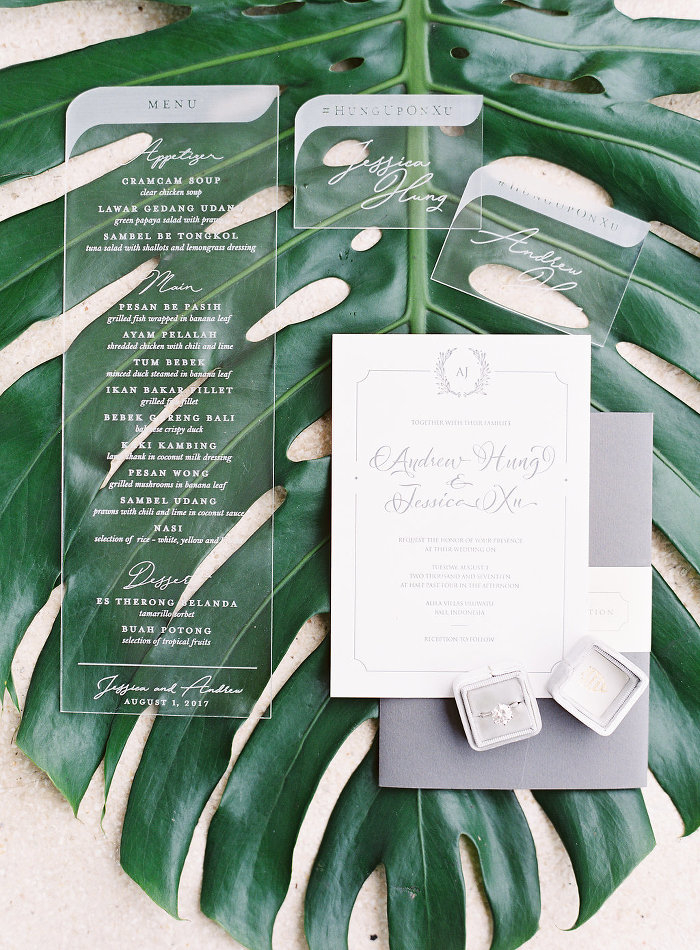 MENU
Appetizer
CRAMCAM SOUP
clear chicken soup
LAWAR GEDANG UDANG
green papaya salad with prawns
SAMBEL BE TONGKOL
tuna salad with shallots and lemongrass dressing
Main
PESAN BE PASIH
grilled fish wrapped in banana leaf
AYAM PELALAH
shredded chicken with chili and lime
TUM BEBEK
minced duck steamed in banana leaf
IKAN BAKAR FILLET
grilled fish fillet
BEBEK GORENG BALI
balinese crispy duck
KAKI KAMBING
lamb shank in coconut milk dressing
PESAN WONG
grilled mushrooms in banana leaf
SAMBEL UDANG
prawns with chili and lime in coconut sauce
NASI
selection of rice - white, yellow and
Dessert
ES THERONG BELANDA
tamarillo sorbet
BUAH POTONG
selection of tropical fruits
Jessica and Andrew
AUGUST 1, 2017
#HUNGUPONXU
Jessica
Hung
#HUNGUPONXU
Andrew
AJ
TOGETHER WITH THEIR FAMILIES
Andrew Hung
&
Jessica Xu
REQUEST THE HONOR OF YOUR PRESENCE
AT THEIR WEDDING ON
TUESDAY, AUGUST 1
TWO THOUSAND AND SEVENTEEN
AT HALF PAST FOUR IN THE AFTERNOON
ALILA VILLAS ULUWATU
BALI, INDONESIA
RECEPTION TO FOLLOW
TION